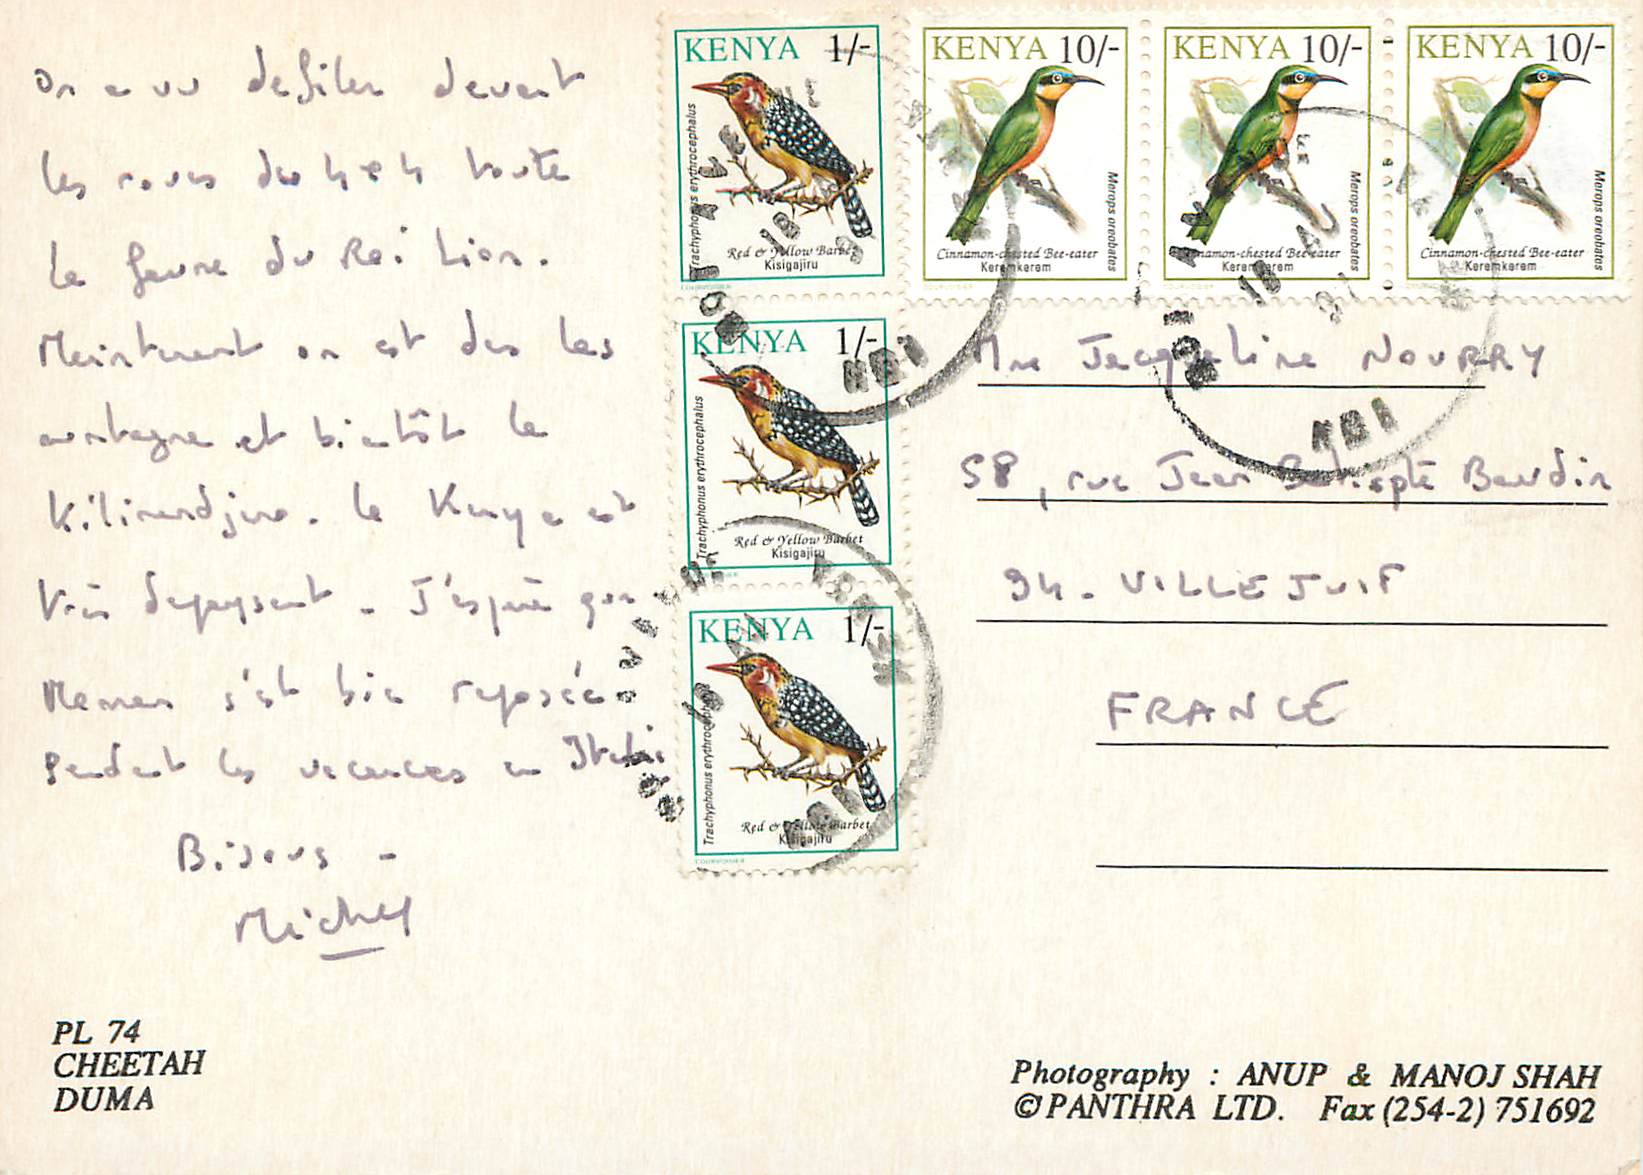 On a vu defiler devant
les roues du 4 x 4 toute
la faune du Roi Lion.
Maintenant on est dans les
montagne et bientôt le
Kilimandjaro. Le Kenya est
très depaysant - J'espère que
Maman s'est bien reposée
Pendant les vacances en Italie
Bisous -
Michel
PL 74
CHEETAH
DUMA
KENYA 1/-
Trachyphonus erythrocephalus
Red & Yellow Barbet
Kisigajiru
COURVOISIER
KENYA 1/-
Trachyphonus erythrocephalus
Red & Yellow Barbet
Kisigajiru
KENYA 1/-
Trachyphonus erythrocephalus
Red & Yellow Barbet
Kisigajiru
COURVOISIER
KENYA 10/-
Merops oreobates
Cinnamon-chested Bee-eater
Keremkerem
COURVOISIER
KENYA 10/-
Merops oreobates
Cinnamon-chested Bee-eater
Keremkerem
COURVOISIER
KENYA 10/-
Merops oreobates
Cinnamon-chested Bee-eater
Keremkerem
18 AU
NBI
Mme Jacqueline NOURRY
58, rue Jean Batispte Baudin
94. VILLEJUIF
FRANCE
Photography : ANUP & MANOJ SHAH
© PANTHRA LTD. Fax (254-2) 751692